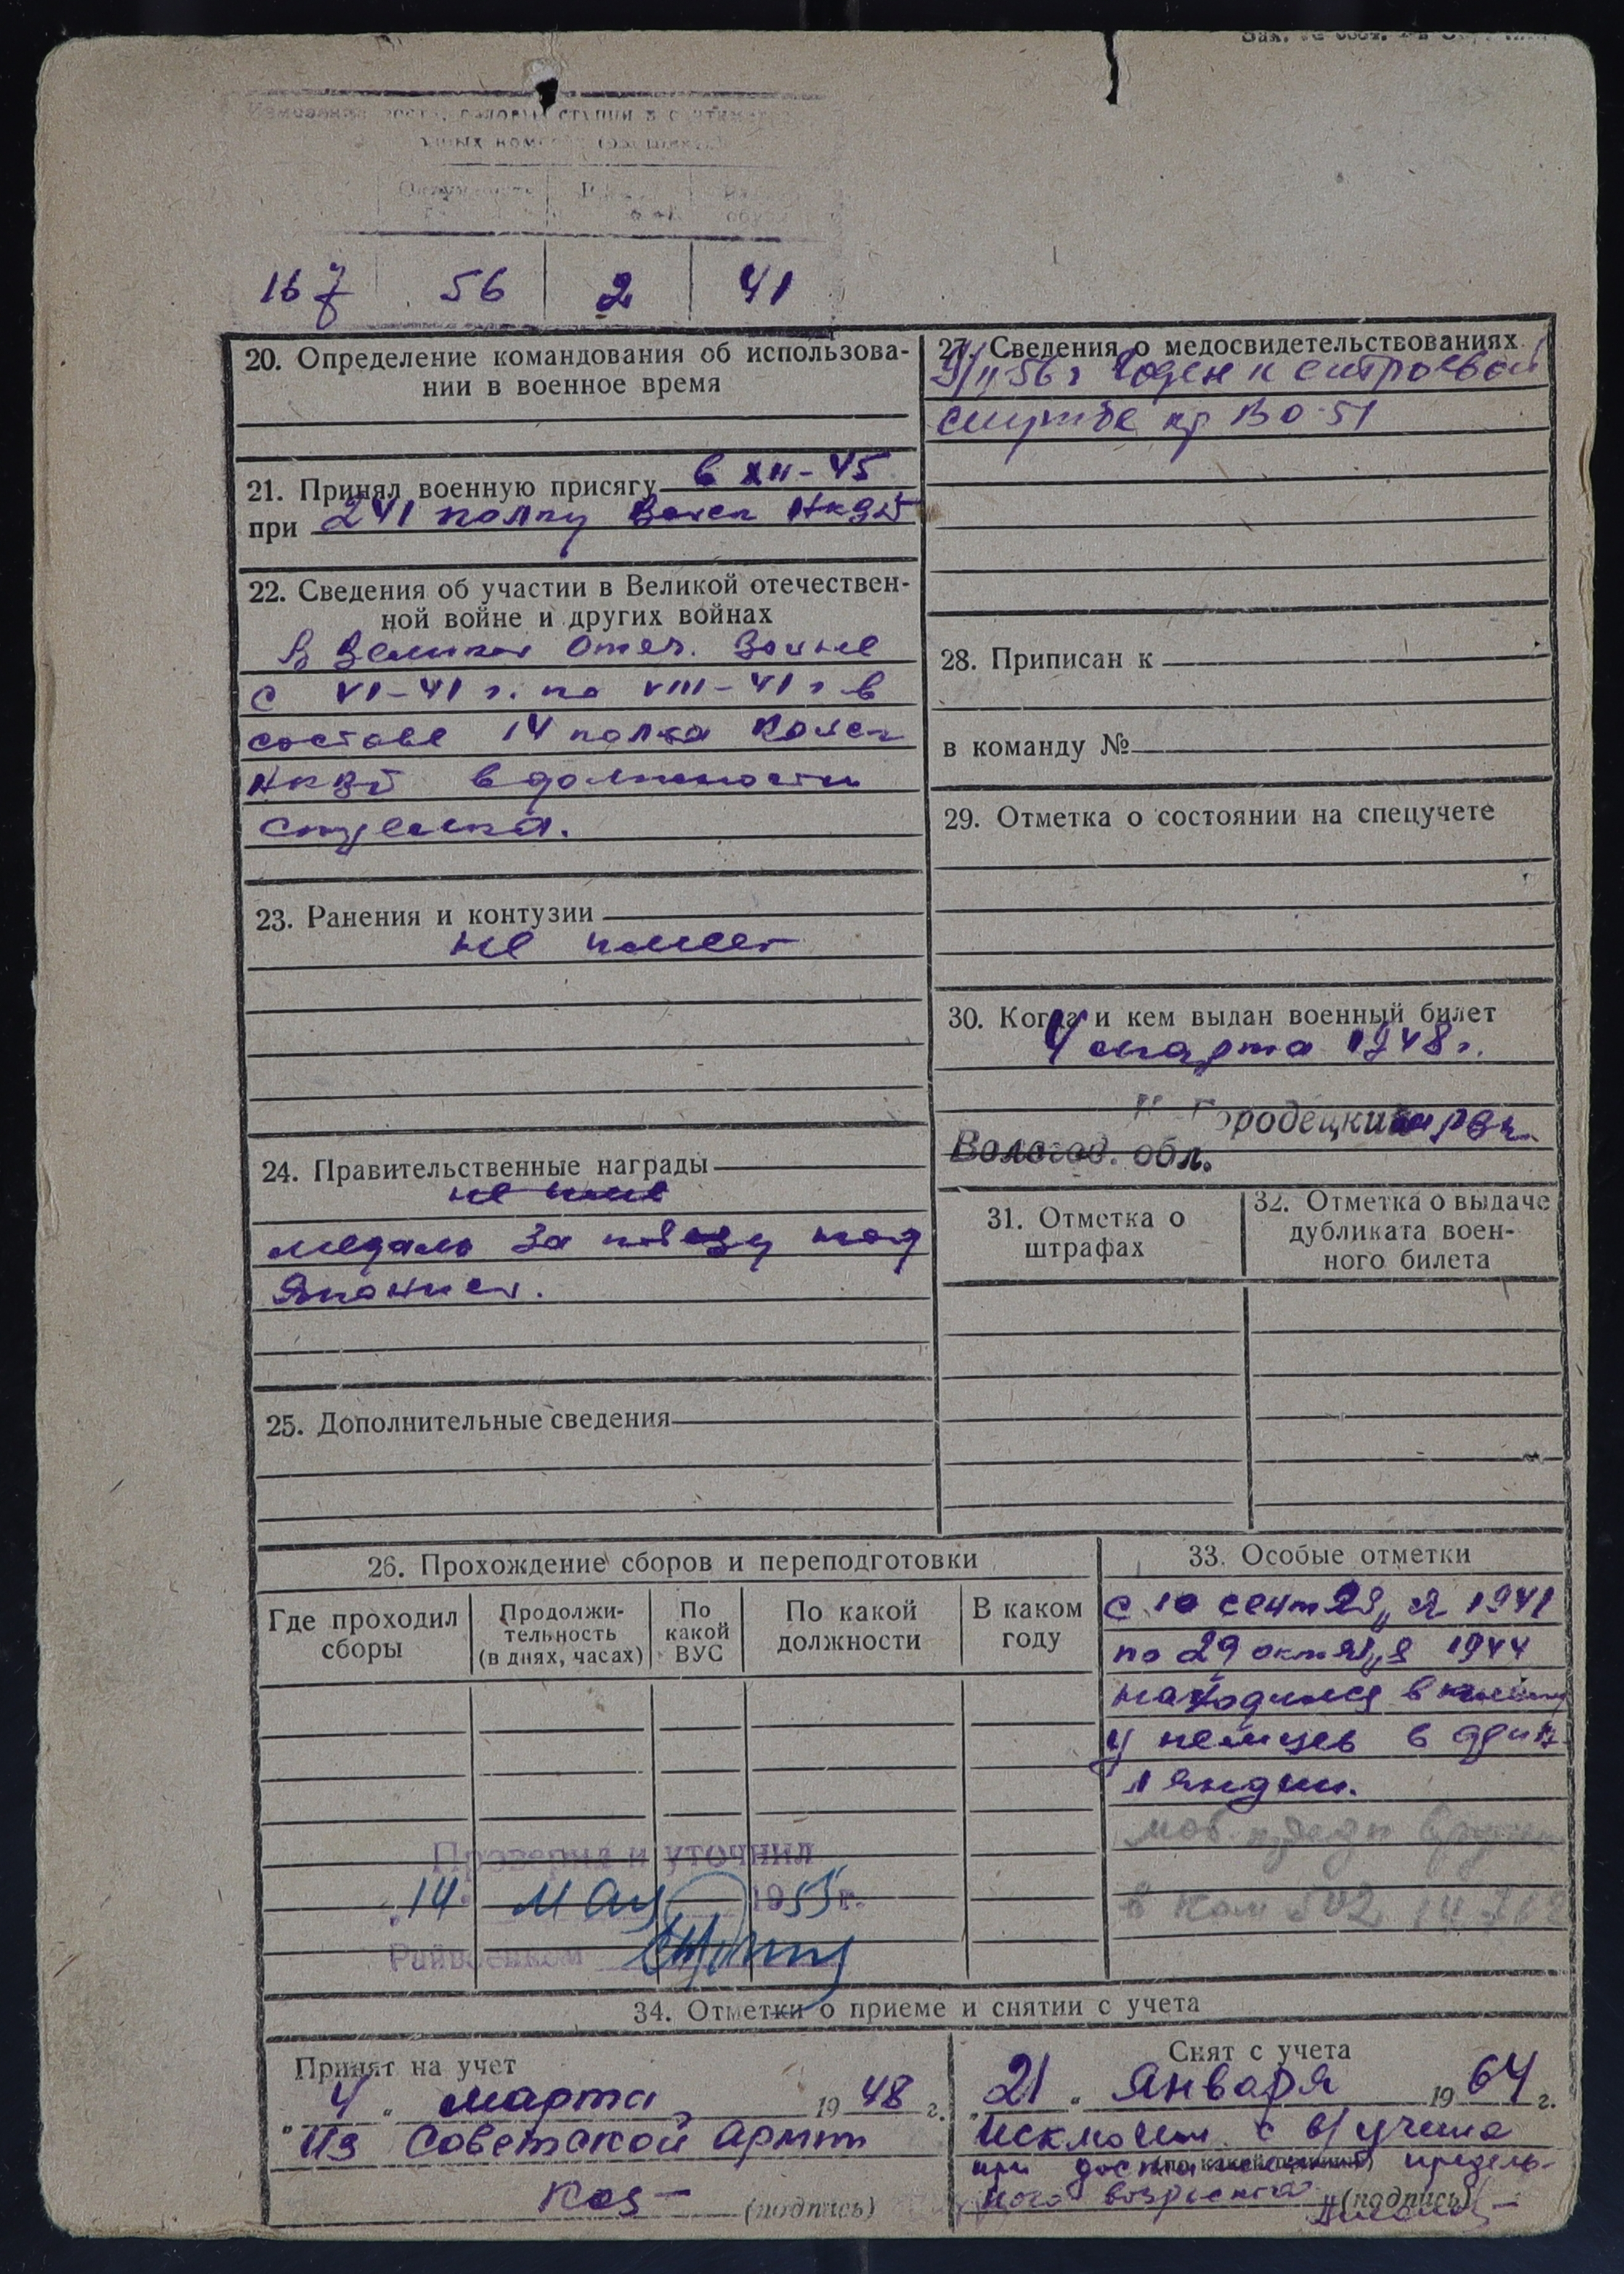 167 56 2 41
20. Определение командования об использова-
нии в военное время
21. Принял военную присягу в XII-45
при 241 полку
22. Сведения об участии в Великой отечествен-
ной войне и других войнах
В Великой Отеч. Войне
с VI-41 г. по VIII-41 г в
составе 14 полка
НКВД в должности
стрелка.
23. Ранения и контузии
не имеет
24. Правительственные награды
не име
медаль За победу над
Японией.
25. Дополнительные сведения
27. Сведения о медосвидетельствованиях
56 г Годен к строевой
службе пр ВО-51
28. Приписан к
в команду №
29. Отметка о состоянии на спецучете
30. Когда и кем выдан военный билет
4 марта 1948 г.
Городецким рвк
Вологод. обл.
31. Отметка о
штрафах
32. Отметка о выдаче
дубликата воен-
ного билета
26. Прохождение сборов и переподготовки
Где проходил
сборы
Продолжи-
тельность
(в днях, часах)
По
какой
ВУС
По какой
должности
В каком
году
Проверил и уточнил
14 мая 1955 г.
Райвоенком
33. Особые отметки
с 10 сентября 1941
по 29 октября 1944
находился в плену
у немцев в Фин-
ляндии.
34. Отметки о приеме и снятии с учета
Принят на учет
"4" марта 1948 г.
Из Советской Армии
(подпись)
Снят с учета
"21" Января 1964 г.
Исключен с в/учета
при достижении предель-
(по какой причине)
ного возраста
(подпись)